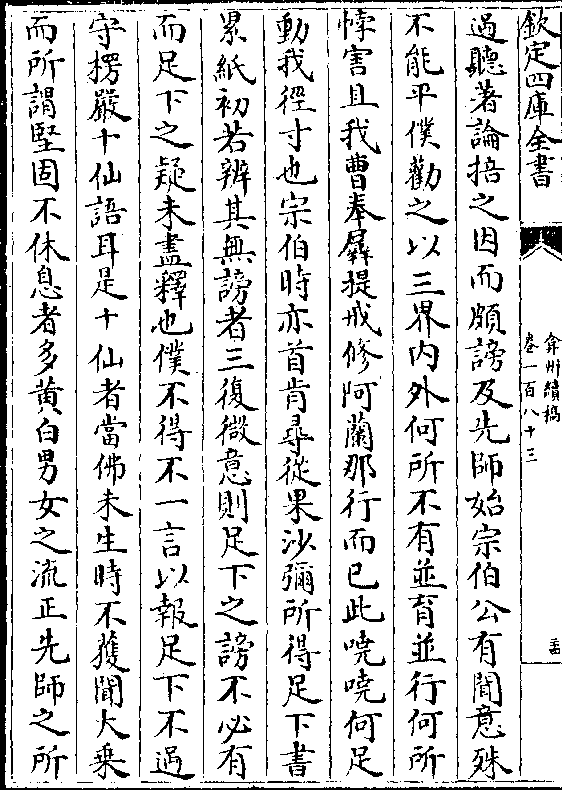 欽定四庫全書
弇州續稿
卷一百八十三
過聽著論掊之因而頗謗及先師始宗伯公有聞意殊
不能平僕勸之以三界內外何所不有並育並行何所
悖害且我曹奉羼提戒修阿蘭那行而已此嘵嘵何足
動我徑寸也宗伯時亦首肯尋從果沙彌所得足下書
累紙初若辨其無謗者三復微意則足下之謗不必有
而足下之疑未盡釋也僕不得不一言以報足下不過
守楞嚴十仙語耳是十仙者當佛未生時不獲聞大乗
而所謂堅固不休息者多黄白男女之流正先師之所